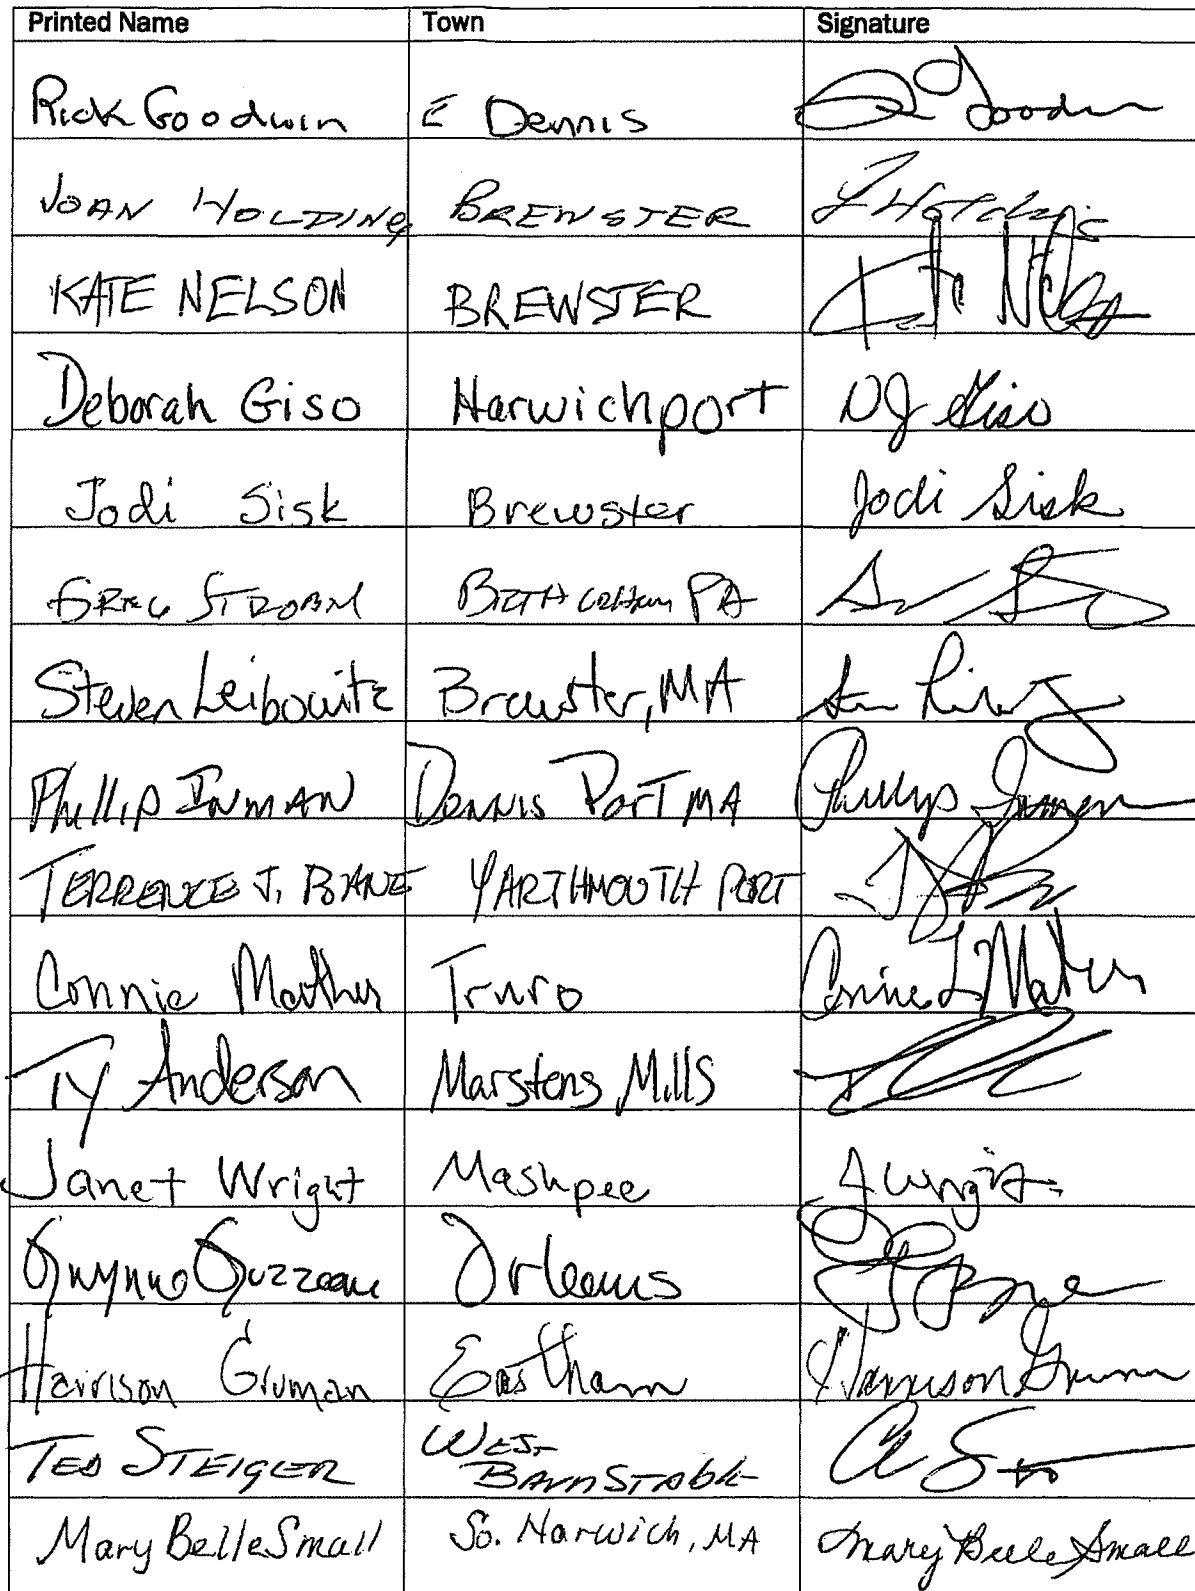 Printed Name Town Signature
Rick Goodwin E Dennis Goodwin
JOAN HOLDING BREWSTER J Holding
KATE NELSON BREWSTER Kate Nelson
Deborah Giso Harwichport DJ Giso
Jodi Sisk Brewster Jodi Sisk
GREG STROHM BETHLEHEM PA
Steven Leibowitz Brewster, MA
Phillip INMAN DENNIS PORT MA Phillip Inman
TERRENCE J. BANE YARTHMOUTH PORT
Connie Mather Truro Connie L Mather
TY Anderson Marstens Mills
Janet Wright Mashpee J Wright
Gwynne Guzzeau Orleans
Harrison Gruman Eastham Harrison Gruman
TED STEIGER WEST
BARNSTABLE
Mary Belle Small So. Harwich, MA Mary Belle Small